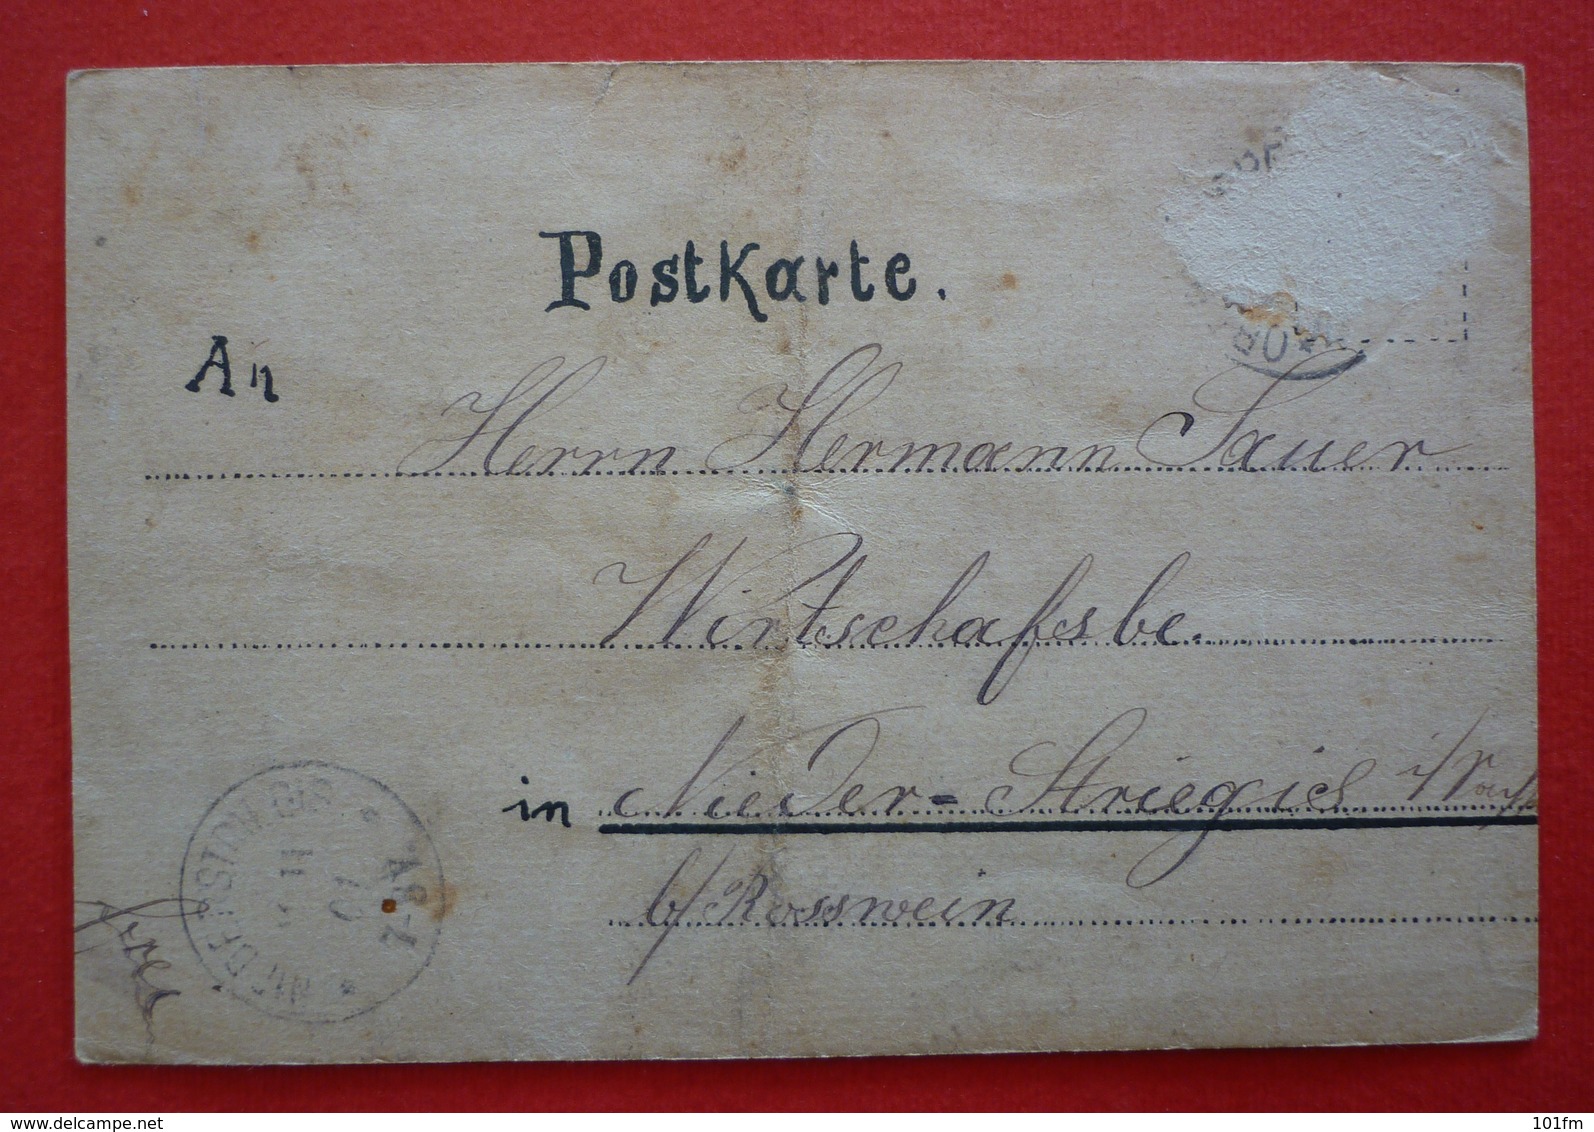 Postkarte.
An
Herrn Hermann Sauer
Wirtschafsbe.
in Nieder-Striegies
b/ Rosswein
www.delcampe.net
101fm